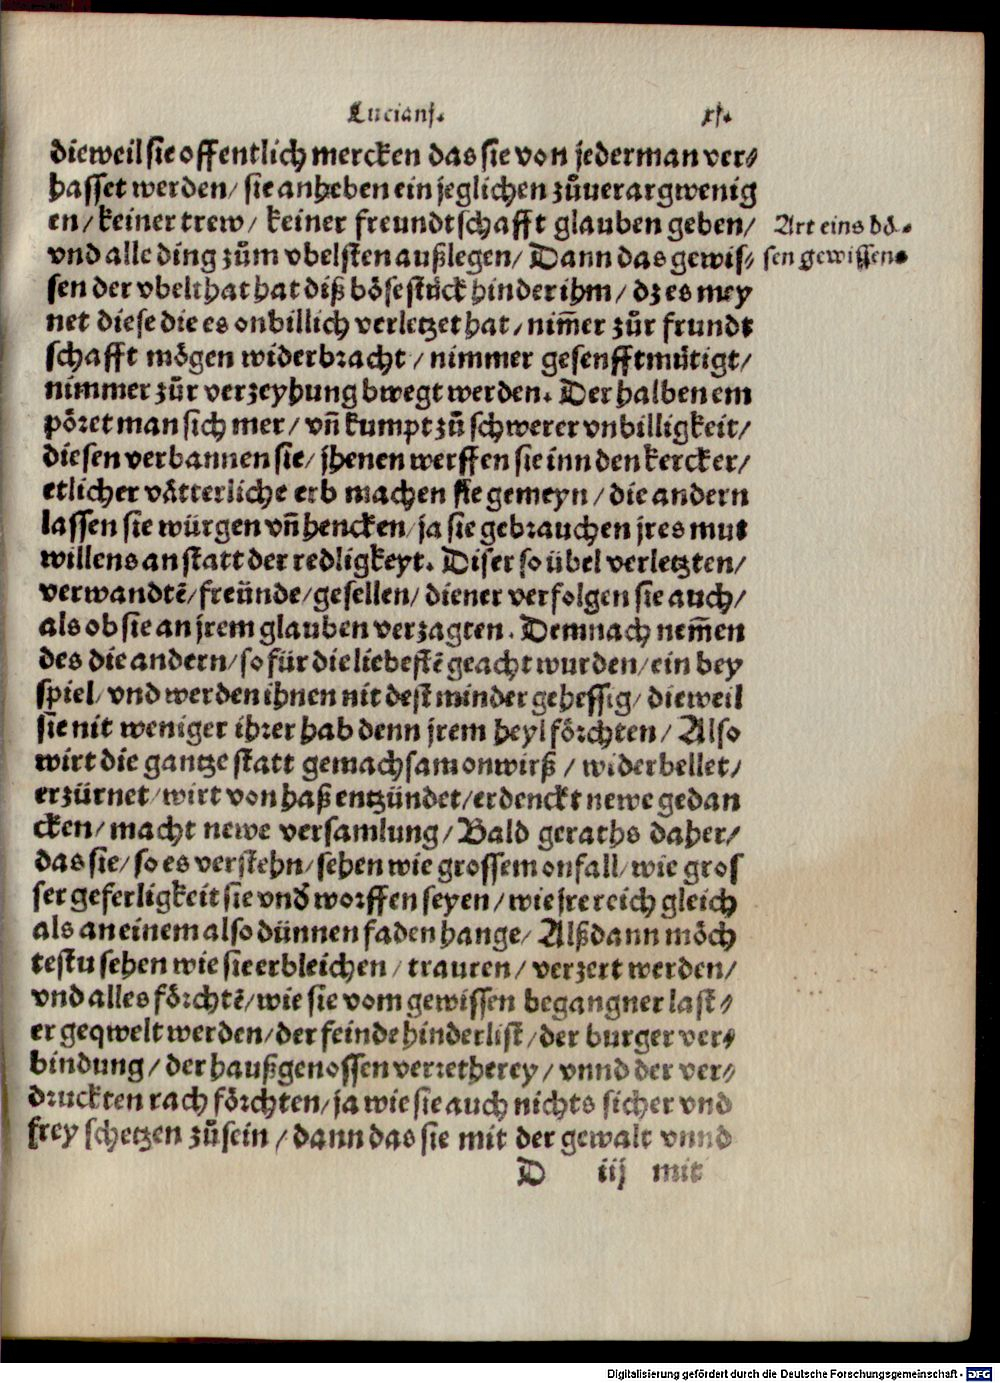 Luciani. xj.
dieweil sie offentlich mercken das sie von jederman ver⸗
hasset werden/ sie anheben ein jeglichen zůuerargwenig
en/ keiner trew/ keiner freundtschafft glauben geben/
Art eins bö⸗
vnd alle ding zům vbelsten außlegen/ Dann das gewis⸗
sen gewissen.
sen der vbelthat hat diß böse stück hinder ihm/ dz es mey
net diese die es onbillich verletzet hat/ nim̃er zůr frundt
schafft mögen widerbracht/ nimmer gesenfftmütigt/
nimmer zůr verzeyhung bwegt werden. Derhalben em
pöret man sich mer/ vñ kumpt zů schwerer vnbilligkeit/
diesen verbannen sie/ jhenen werffen sie inn den kercker/
etlicher vätterliche erb machen sie gemeyn/ die andern
lassen sie würgen vñ hencken/ ja sie gebrauchen jres mut
willens an statt der redligkeyt. Diser so übel verletzten/
verwandtẽ/ freünde/ gesellen/ diener verfolgen sie auch/
als ob sie an jrem glauben verzagten. Demnach nem̃en
des die andern/ so für die liebestẽ geacht wurden/ ein bey
spiel/ vnd werden ihnen nit dest minder gehessig/ dieweil
sie nit weniger ihrer hab denn jrem heyl förchten/ Also
wirt die gantze statt gemachsam onwirß/ widerbellet/
erzürnet/ wirt von haß entzündet/ erdenckt newe gedan
cken/ macht newe versamlung/ Bald geraths daher/
das sie/ so es verstehn/ sehen wie grossem onfall/ wie gros
ser geferligkeit sie vnd̕ worffen seyen/ wie jre reich gleich
als an einem also dünnen faden hange/ Alßdann möch
testu sehen wie sie erbleichen/ trauren/ verzert werden/
vnd alles förchtẽ/ wie sie vom gewissen begangner last⸗
er geqwelt werden/ der feinde hinderlist/ der burger ver⸗
bindung/ der haußgenossen verretherey/ vnnd der ver⸗
druckten rach förchten/ ja wie sie auch nichts sicher vnd
frey schetzen zů sein/ dann das sie mit der gewalt vnnd
D iij mit
Digitalisierung gefördert durch die Deutsche Forschungsgemeinschaft - DFG